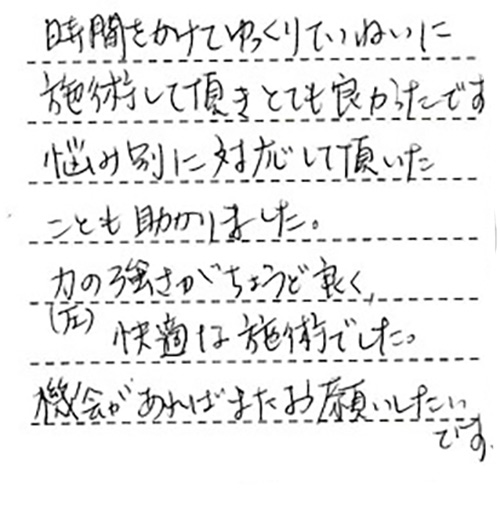 時間をかけてゆっくりていねいに
施術して頂きとても良かったです
悩み別に対応して頂いた
ことも助かりました。
力の強さがちょうど良く、
(圧)
快適な施術でした。
機会があればまたお願いしたい
です。